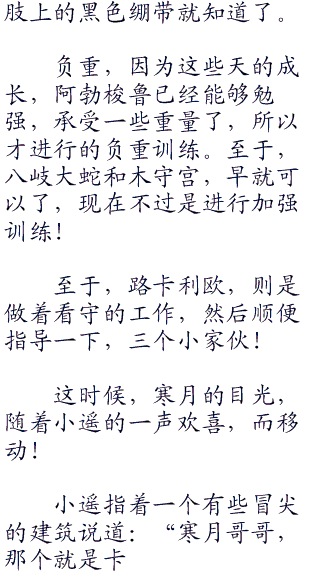 肢上的黑色绷带就知道了。
负重，因为这些天的成
长，阿勃梭鲁已经能够勉
强，承受一些重量了，所以
才进行的负重训练。至于，
八岐大蛇和木守宫，早就可
以了，现在不过是进行加强
训练！
至于，路卡利欧，则是
做着看守的工作，然后顺便
指导一下，三个小家伙！
这时候，寒月的目光，
随着小遥的一声欢喜，而移
动！
小遥指着一个有些冒尖
的建筑说道：“寒月哥哥，
那个就是卡